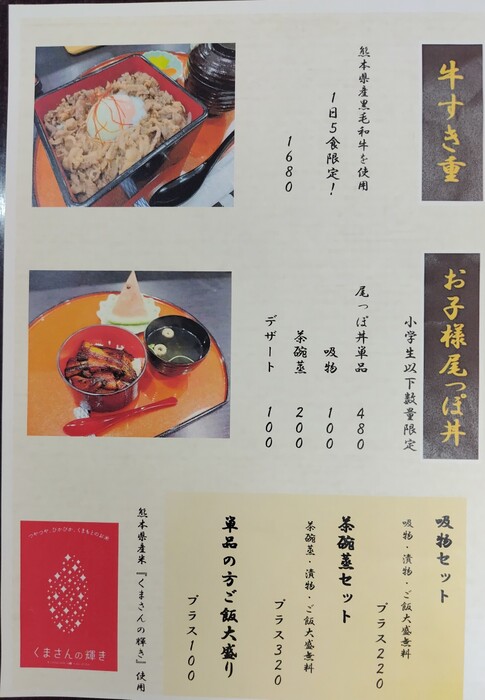 牛すき重
熊本県産黒毛和牛を使用
1日5食限定！
1680
お子様尾っぽ丼
小学生以下数量限定
尾っぽ丼単品 480
吸物 100
茶碗蒸 200
デザート 100
吸物セット
吸物・漬物・ご飯大盛無料
プラス220
茶碗蒸セット
茶碗蒸・漬物・ご飯大盛無料
プラス320
単品の方ご飯大盛り
プラス100
熊本県産米『くまさんの輝き』使用
つやつや、ぴかぴか、くまもとのお米
くまさんの輝き